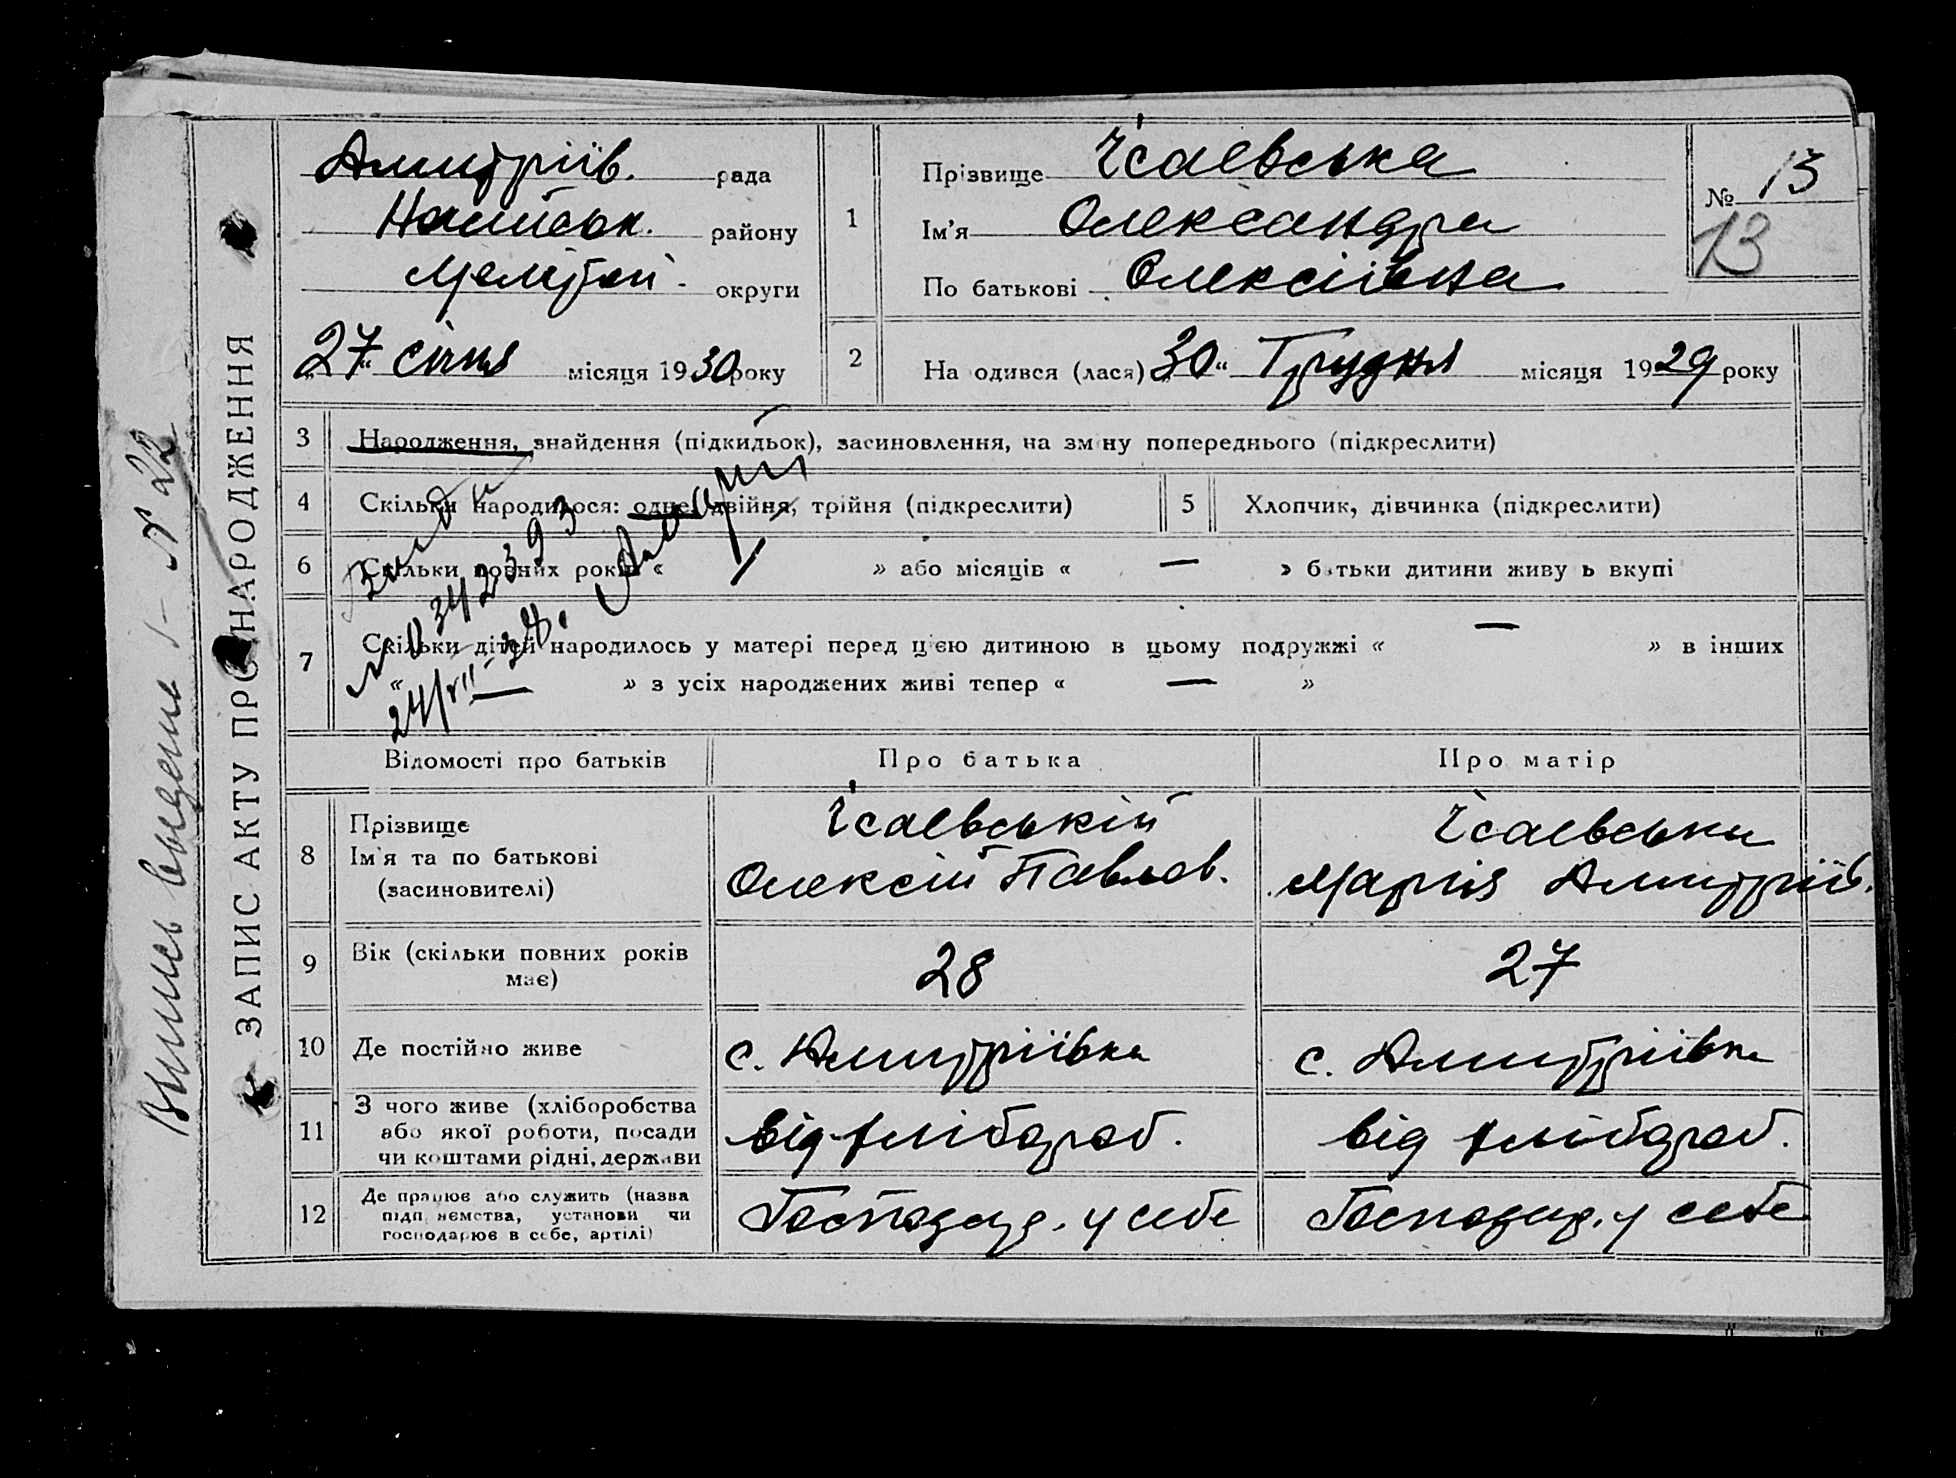 ЗАПИС АКТУ ПРО НАРОДЖЕННЯ
Дмитріїв. рада
району
Меліт. округи
„27“ січня місяця 1930 року
1
Прізвище Ісаєвська
Ім'я Олександра
По батькові Олексіївна
№ 13
13
2
Народився (лася) „30“ Грудня місяця 1929 року
3 Народження, знайдення (підкидьок), засиновлення, на зміну попереднього (підкреслити)
4 Скільки народилося: одне, двійня, трійня (підкреслити)
5 Хлопчик, дівчинка (підкреслити)
6 Скільки повних років « — » або місяців « — » батьки дитини живуть вкупі
7 Скільки дітей народилось у матері перед цією дитиною в цьому подружжі « — » в інших
« — » з усіх народжених живі тепер « — »
№ 0342393
Відомості про батьків
Про батька
Про матір
8 Прізвище
Ім'я та по батькові
(засиновителі)
Ісаєвській
Олексій Павлов.
Ісаєвська
Марія Дмитріїв.
9 Вік (скільки повних років
має)
28
27
10 Де постійно живе
с. Дмитріївка
с. Дмитріївка
11 З чого живе (хліборобства
або якої роботи, посади
чи коштами рідні, держави
від хлібороб.
від хлібороб.
12 Де працює або служить (назва
підприємства, установи чи
господарює в себе, артілі)
Господар. у себе
Господар. у себе
№ 22